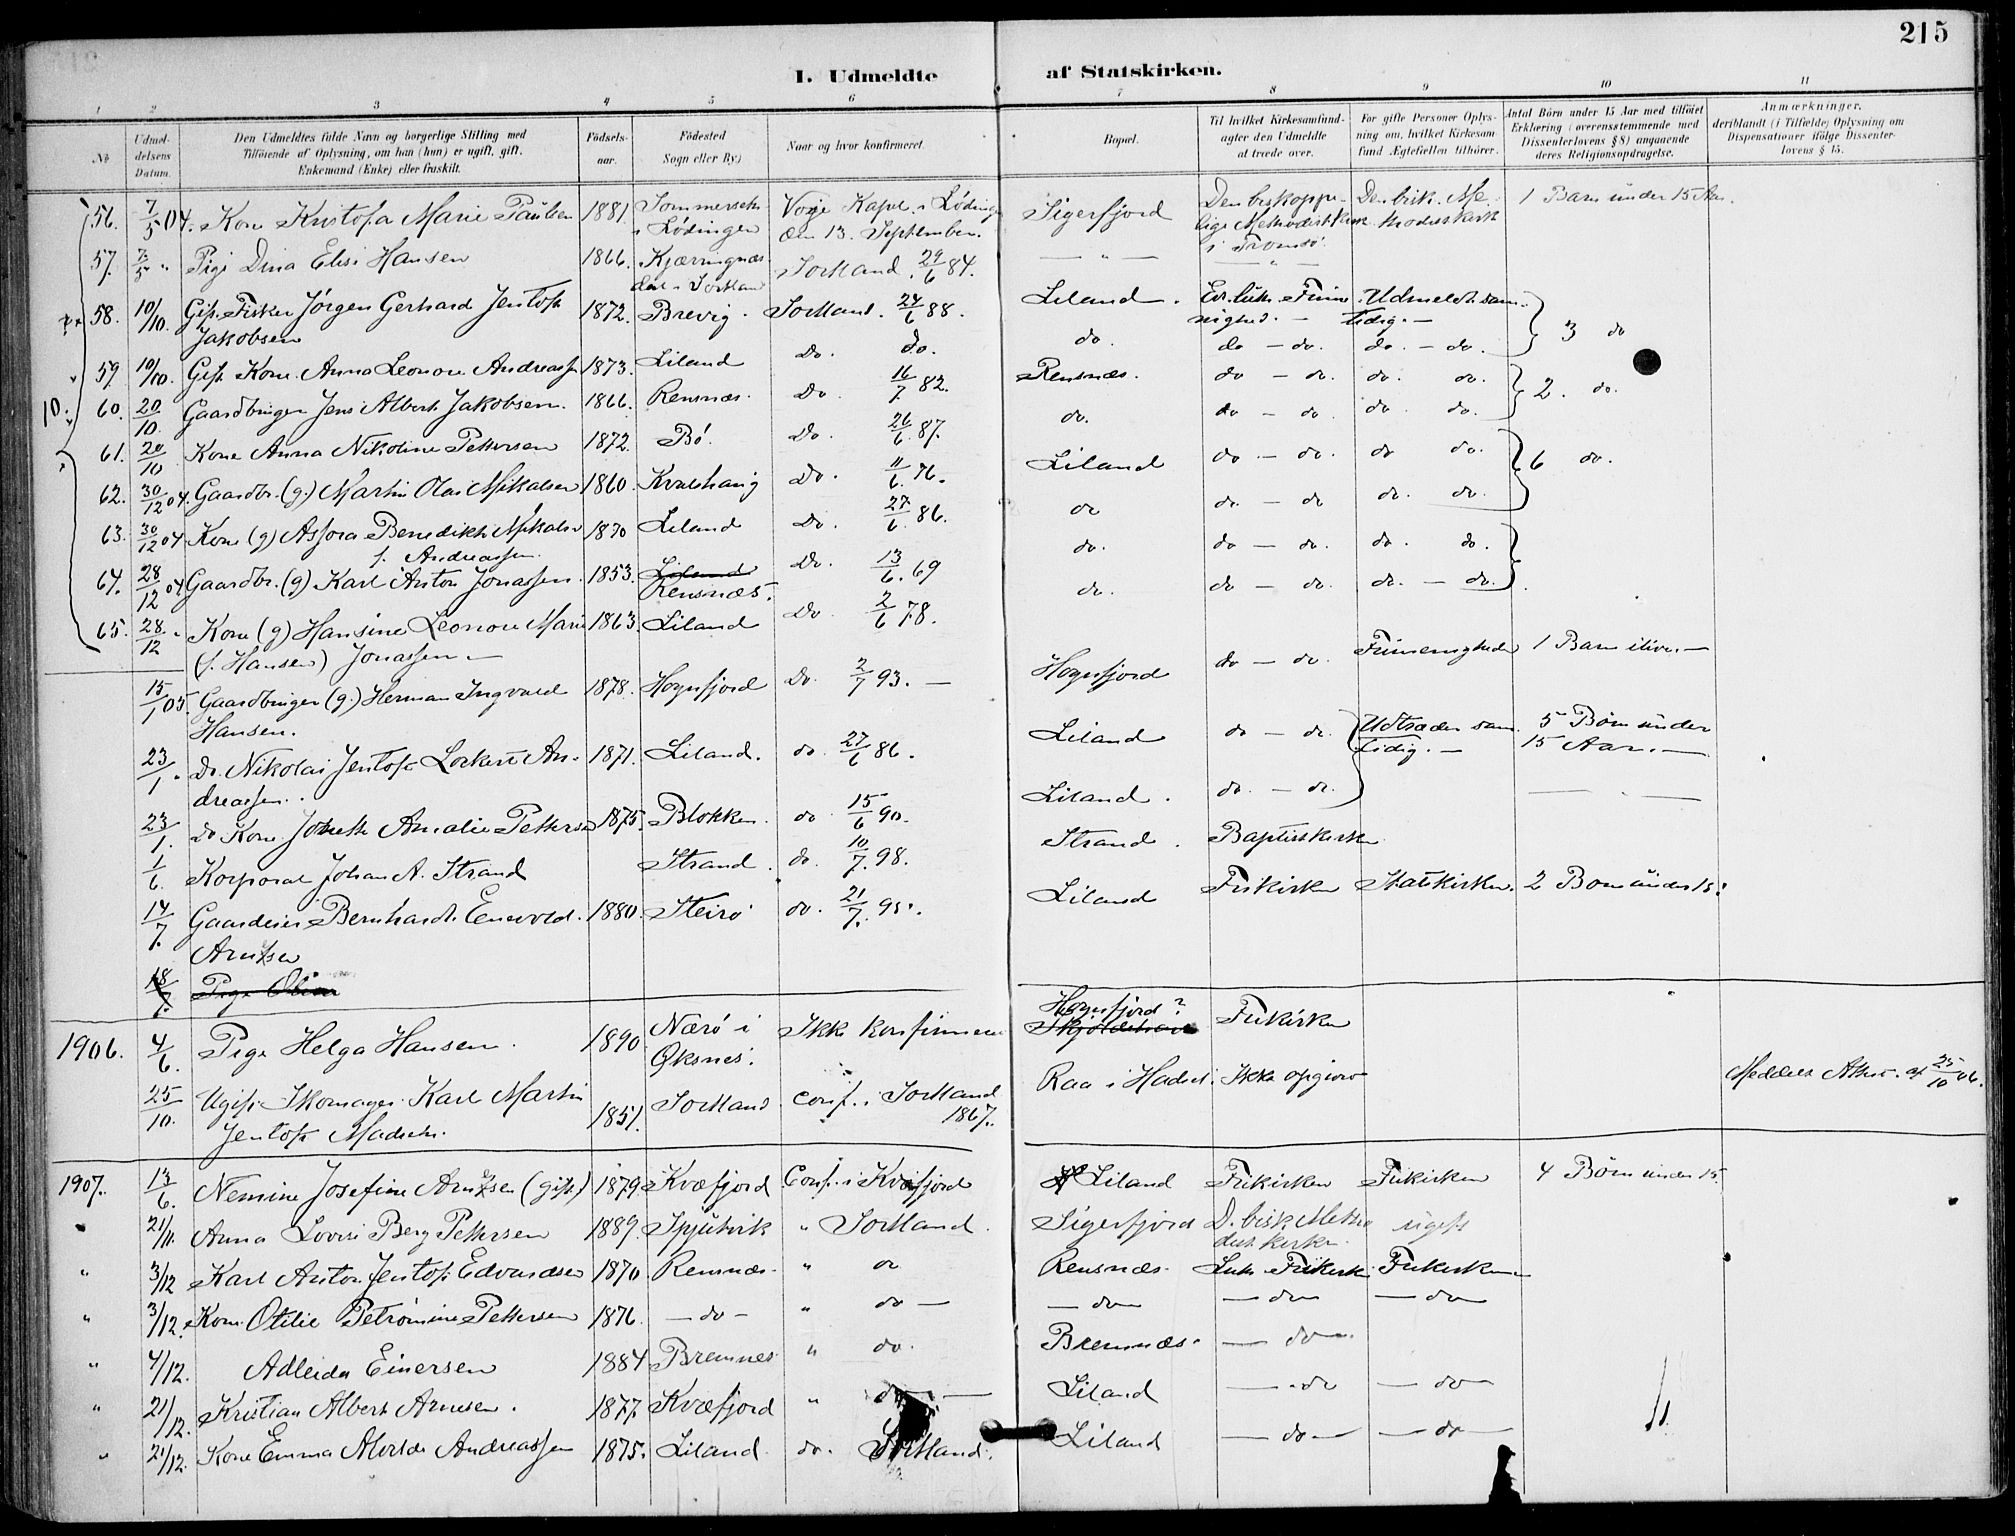 215
I. Udmeldte af Statskirken.
1 2 3 4 5 6 7 8 9 10 11
No
Udmel-
delsens
Datum.
Den Udmeldtes fulde Navn og borgerlige Stilling med
Tilføiende af Oplysning, om han (hun) er ugift, gift.
Enkemand (Enke) eller fraskilt.
Fødsels-
aar.
Fødested
Sogn eller By)
Naar og hvor konfirmeret.
Bopæl.
Til hvilket Kirkesamfund
agter den Udmeldte
at træde over.
For gifte Personer Oplys-
ning om, hvilket Kirkesam
fund Ægtefællen tilhører.
Antal Børn under 15 Aar med tilføiet
Erklæring (overensstemmende med
Dissenterlovens § 8) angaaende
deres Religionsopdragelse.
Anmærkninger,
deriblandt (i Tilfælde) Oplysning om
Dispensationer ifølge Dissenter-
lovens § 15.
56. 7/5 04. Kone Kristofa Marie Paulsen 1881. i Lødingen den 13. September. Sigerfjord 1 Barn under 15 Aar.
57. 7/5 " Pige Dina Elise Hansen 1866. Sortland. 29/6 84. — " —
i Tromsø.
58. 10/10. Gift Fisker Jørgen Gerhard Jentoft 1872. Brevig. Sortland. 24/6 88. Liland. Udmeldt sam-
Jakobsen tidig. — 3 do
59. 10/10. Gift Kone Anna Leonore Andreassen 1873. Liland do. do. do. do — do. do. — do.
10.
60. 20/10. Gaardbruger Jens Albert Jakobsen. 1866. Rensnæs. do. 16/7 82. Rensnæs. do — do. do. do. 2. do.
61. 20/10 Kone Anna Nikoline Pettersen 1872 Bø. do. 26/6 87. do. do — do. do. do.
62. 30/12 04. Gaardbr. (g.) Martin Olai Mikalsen 1860. Kvalshaug do. 11/6. 76. Liland do — do. do do. 6 do.
63. 30/12 04 Kone (g) Benedikte Mikalsen 1870 Liland do. 27/6. 86. do do. — do do. do.
f. Andreassen.
64. 28/12 04 Gaardbr. (g) Karl Anton Jonassen. 1853. Liland do. 13/6. 69 do. do — do. do. do.
Rensnæs.
65. 28/12 " Kone (g) Hansine Leonore Marie 1863. Liland do. 2/6 78. do. do — do. do. — do.
(f. Hansen) Jonassen —
15/1 05. Gaardbruger (g.) Herman Ingvard 1878. Hognfjord do. 2/7 93. — Hognfjord do — do. 1 Barn ilive. —
Hansen.
23/1 " do. Nikolai Jentoft Lockert An- 1871. Liland. do. 27/6 86. Liland do — do. Udtræder sam- 5 Børn under
dreassen. tidig. — 15 Aar. —
23/1. do Kone Amalie Pettersen 1875. Blokken. do. 15/6 90. Liland. do. — do.
1/6. Korporal Johan A. Strand Strand. do. 10/7. 98. Strand. Baptistkirken
14/7. Gaardeier Bernhardt Enevold. 1880. Steirø do. 21/7. 95. Liland Frikirken Statskirken. 2 Børn under 15.
Arntzen
18/7. Pige
1906. 4/6. Pige Helga Hansen. 1890 Nærø i Ikke konfirmeret Hognfjord? Frikirken
Øksnes.
25/10. Ugift Skomager Karl Martin 1851. Sortland conf. i Sortland Raa i Hadsel. Ikke opgivet Meddelt Attest. af 25/10 06.
Jentoft Madsen. 1867.
1907. 13/6. Nemine Josefine Arntzen (gift) 1879 Kvæfjord Conf. i Kvæfjord Liland Frikirken Frikirken 4 Børn under 15.
" 21/11. Anna Lovise Berg Pettersen 1889. Spjutvik " Sortland. Sigerfjord D. bisk Metho ugift
dist kirke.
" 3/12 Karl Anton Jentoft Edvardsen 1870 Rensnæs. " do Rensnæs. Luth Frikirke Frikirken
" 3/12. Kone Otilie Petromine Pettersen 1876. — do — " do — — do — — do — — do —
" 4/12. Adleida Einersen 1884 Bremnes " do. Bremnæs. — do —
" 21/12. Kristian Albert Arnesen. 1877. Kvæfjord " do — Liland — do — do —
" 21/12. Kone Emma Andreassen 1875. Liland do. Sortland. Liland — do — — do —